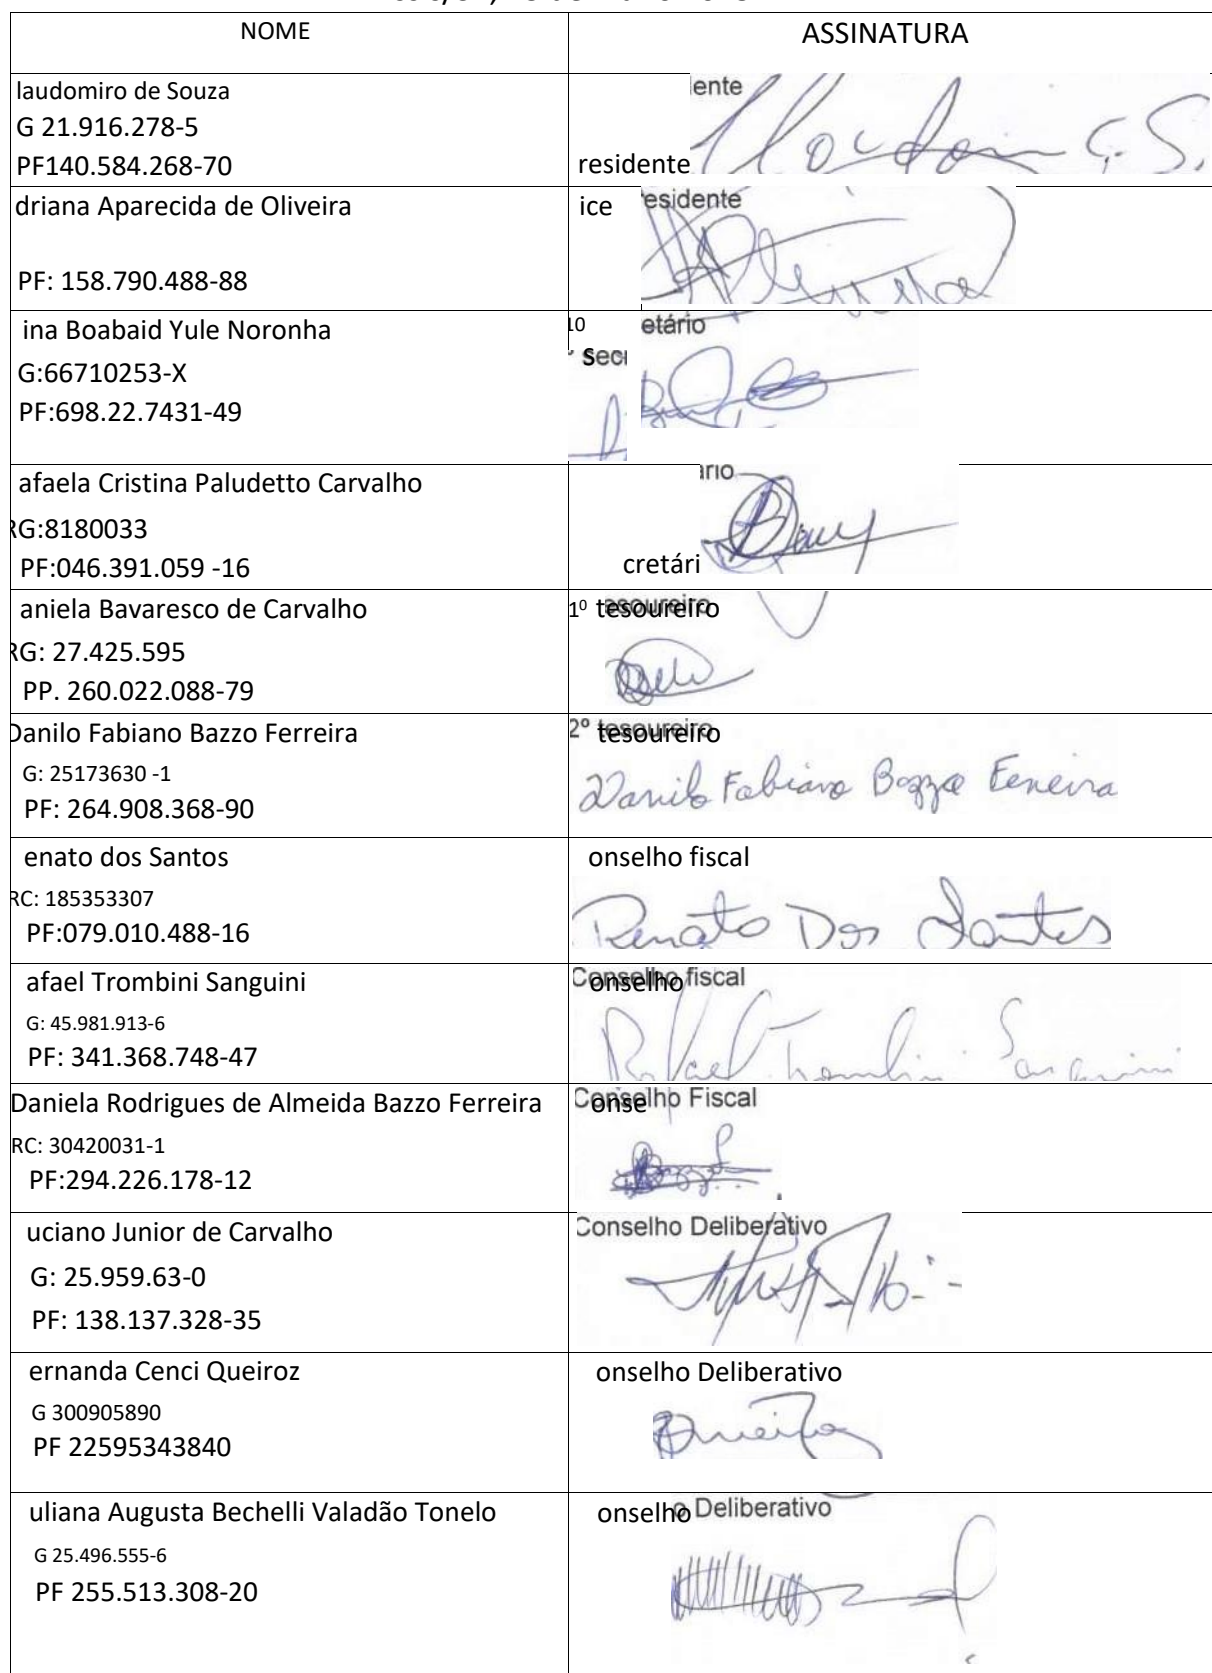 NOME
ASSINATURA
laudomiro de Souza
G 21.916.278-5
PF140.584.268-70
ente
residente
driana Aparecida de Oliveira
PF: 158.790.488-88
ice
esidente
ina Boabaid Yule Noronha
G:66710253-X
PF:698.22.7431-49
10
etário
secr
afaela Cristina Paludetto Carvalho
RG:8180033
PF:046.391.059 -16
ário
cretári
aniela Bavaresco de Carvalho
RG: 27.425.595
PP. 260.022.088-79
1º tesoureiro
Danilo Fabiano Bazzo Ferreira
G: 25173630 -1
PF: 264.908.368-90
2º tesoureiro
Danilo Fabiano Bazzo Ferreira
enato dos Santos
RC: 185353307
PF:079.010.488-16
onselho fiscal
Renato Dos Santos
afael Trombini Sanguini
G: 45.981.913-6
PF: 341.368.748-47
Conselho fiscal
Rafael Trombini Sanguini
Daniela Rodrigues de Almeida Bazzo Ferreira
RC: 30420031-1
PF:294.226.178-12
Conselho Fiscal
uciano Junior de Carvalho
G: 25.959.63-0
PF: 138.137.328-35
Conselho Deliberativo
ernanda Cenci Queiroz
G 300905890
PF 22595343840
onselho Deliberativo
uliana Augusta Bechelli Valadão Tonelo
G 25.496.555-6
PF 255.513.308-20
onselho Deliberativo